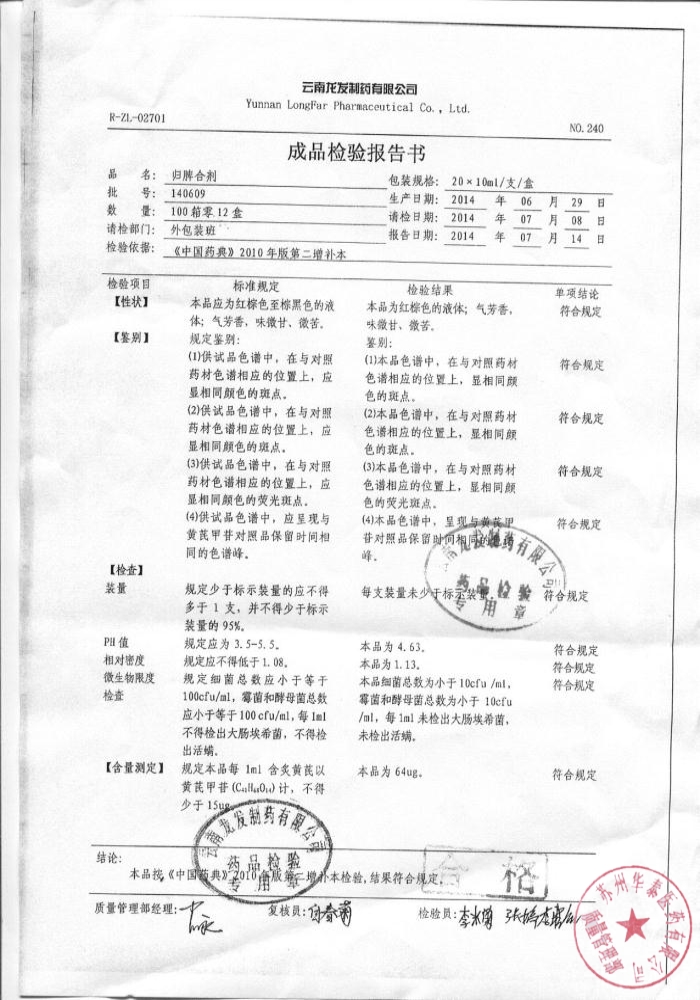 云南龙发制药有限公司
Yunnan LongFar Pharmaceutical Co., Ltd.
R-ZL-02701
NO.240
成品检验报告书
品 名: 归脾合剂 包装规格: 20×10ml/支/盒
批 号: 140609 生产日期: 2014 年 06 月 29 日
数 量: 100箱零12盒 请检日期: 2014 年 07 月 08 日
请检部门: 外包装班 报告日期: 2014 年 07 月 14 日
检验依据: 《中国药典》2010年版第二增补本
检验项目 标准规定 检验结果 单项结论
【性状】 本品应为红棕色至棕黑色的液 本品为红棕色的液体; 气芳香, 符合规定
体; 气芳香, 味微甘、微苦。 味微甘、微苦。
【鉴别】 规定鉴别: 鉴别:
(1)供试品色谱中, 在与对照 (1)本品色谱中, 在与对照药材 符合规定
药材色谱相应的位置上, 应 色谱相应的位置上, 显相同颜
显相同颜色的斑点。 色的斑点。
(2)供试品色谱中, 在与对照 (2)本品色谱中, 在与对照药材 符合规定
药材色谱相应的位置上, 应 色谱相应的位置上, 显相同颜
显相同颜色的斑点。 色的斑点。
(3)供试品色谱中, 在与对照 (3)本品色谱中, 在与对照药材 符合规定
药材色谱相应的位置上, 应 色谱相应的位置上, 显相同颜
显相同颜色的荧光斑点。 色的荧光斑点。
(4)供试品色谱中, 应呈现与 (4)本品色谱中, 呈现与黄芪甲 符合规定
黄芪甲苷对照品保留时间相 苷对照品保留时间相同的色谱
同的色谱峰。 峰。
云南龙发制药有限公司
药品检验
专用章
【检查】
装量 规定少于标示装量的应不得 每支装量未少于标示装量。 符合规定
多于 1 支, 并不得少于标示
装量的 95%。
PH值 规定应为 3.5-5.5。 本品为 4.63。 符合规定
相对密度 规定应不得低于 1.08。 本品为 1.13。 符合规定
微生物限度 规定细菌总数应小于等于 本品细菌总数为小于 10cfu /ml, 符合规定
检查 100cfu/ml, 霉菌和酵母菌总数 霉菌和酵母菌总数为小于 10cfu
应小于等于 100 cfu/ml, 每 1ml /ml, 每 1ml 未检出大肠埃希菌,
不得检出大肠埃希菌, 不得检 未检出活螨。
出活螨。
【含量测定】 规定本品每 1ml 含炙黄芪以 本品为 64ug。 符合规定
黄芪甲苷(C₄₁H₆₈O₁₄)计, 不得
少于 15ug。
云南龙发制药有限公司
药品检验
专用章
结论:
合格
本品按《中国药典》2010年版第二增补本检验, 结果符合规定。
质量管理部经理: 复核员: 检验员:
苏州华泰医药有限公司